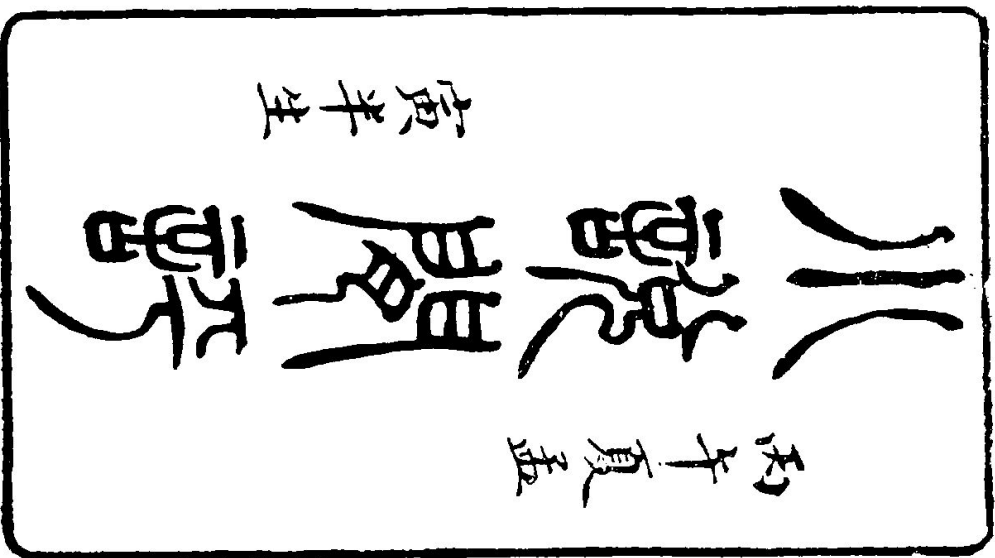 丙午夏孟
小說閒評
寅半生